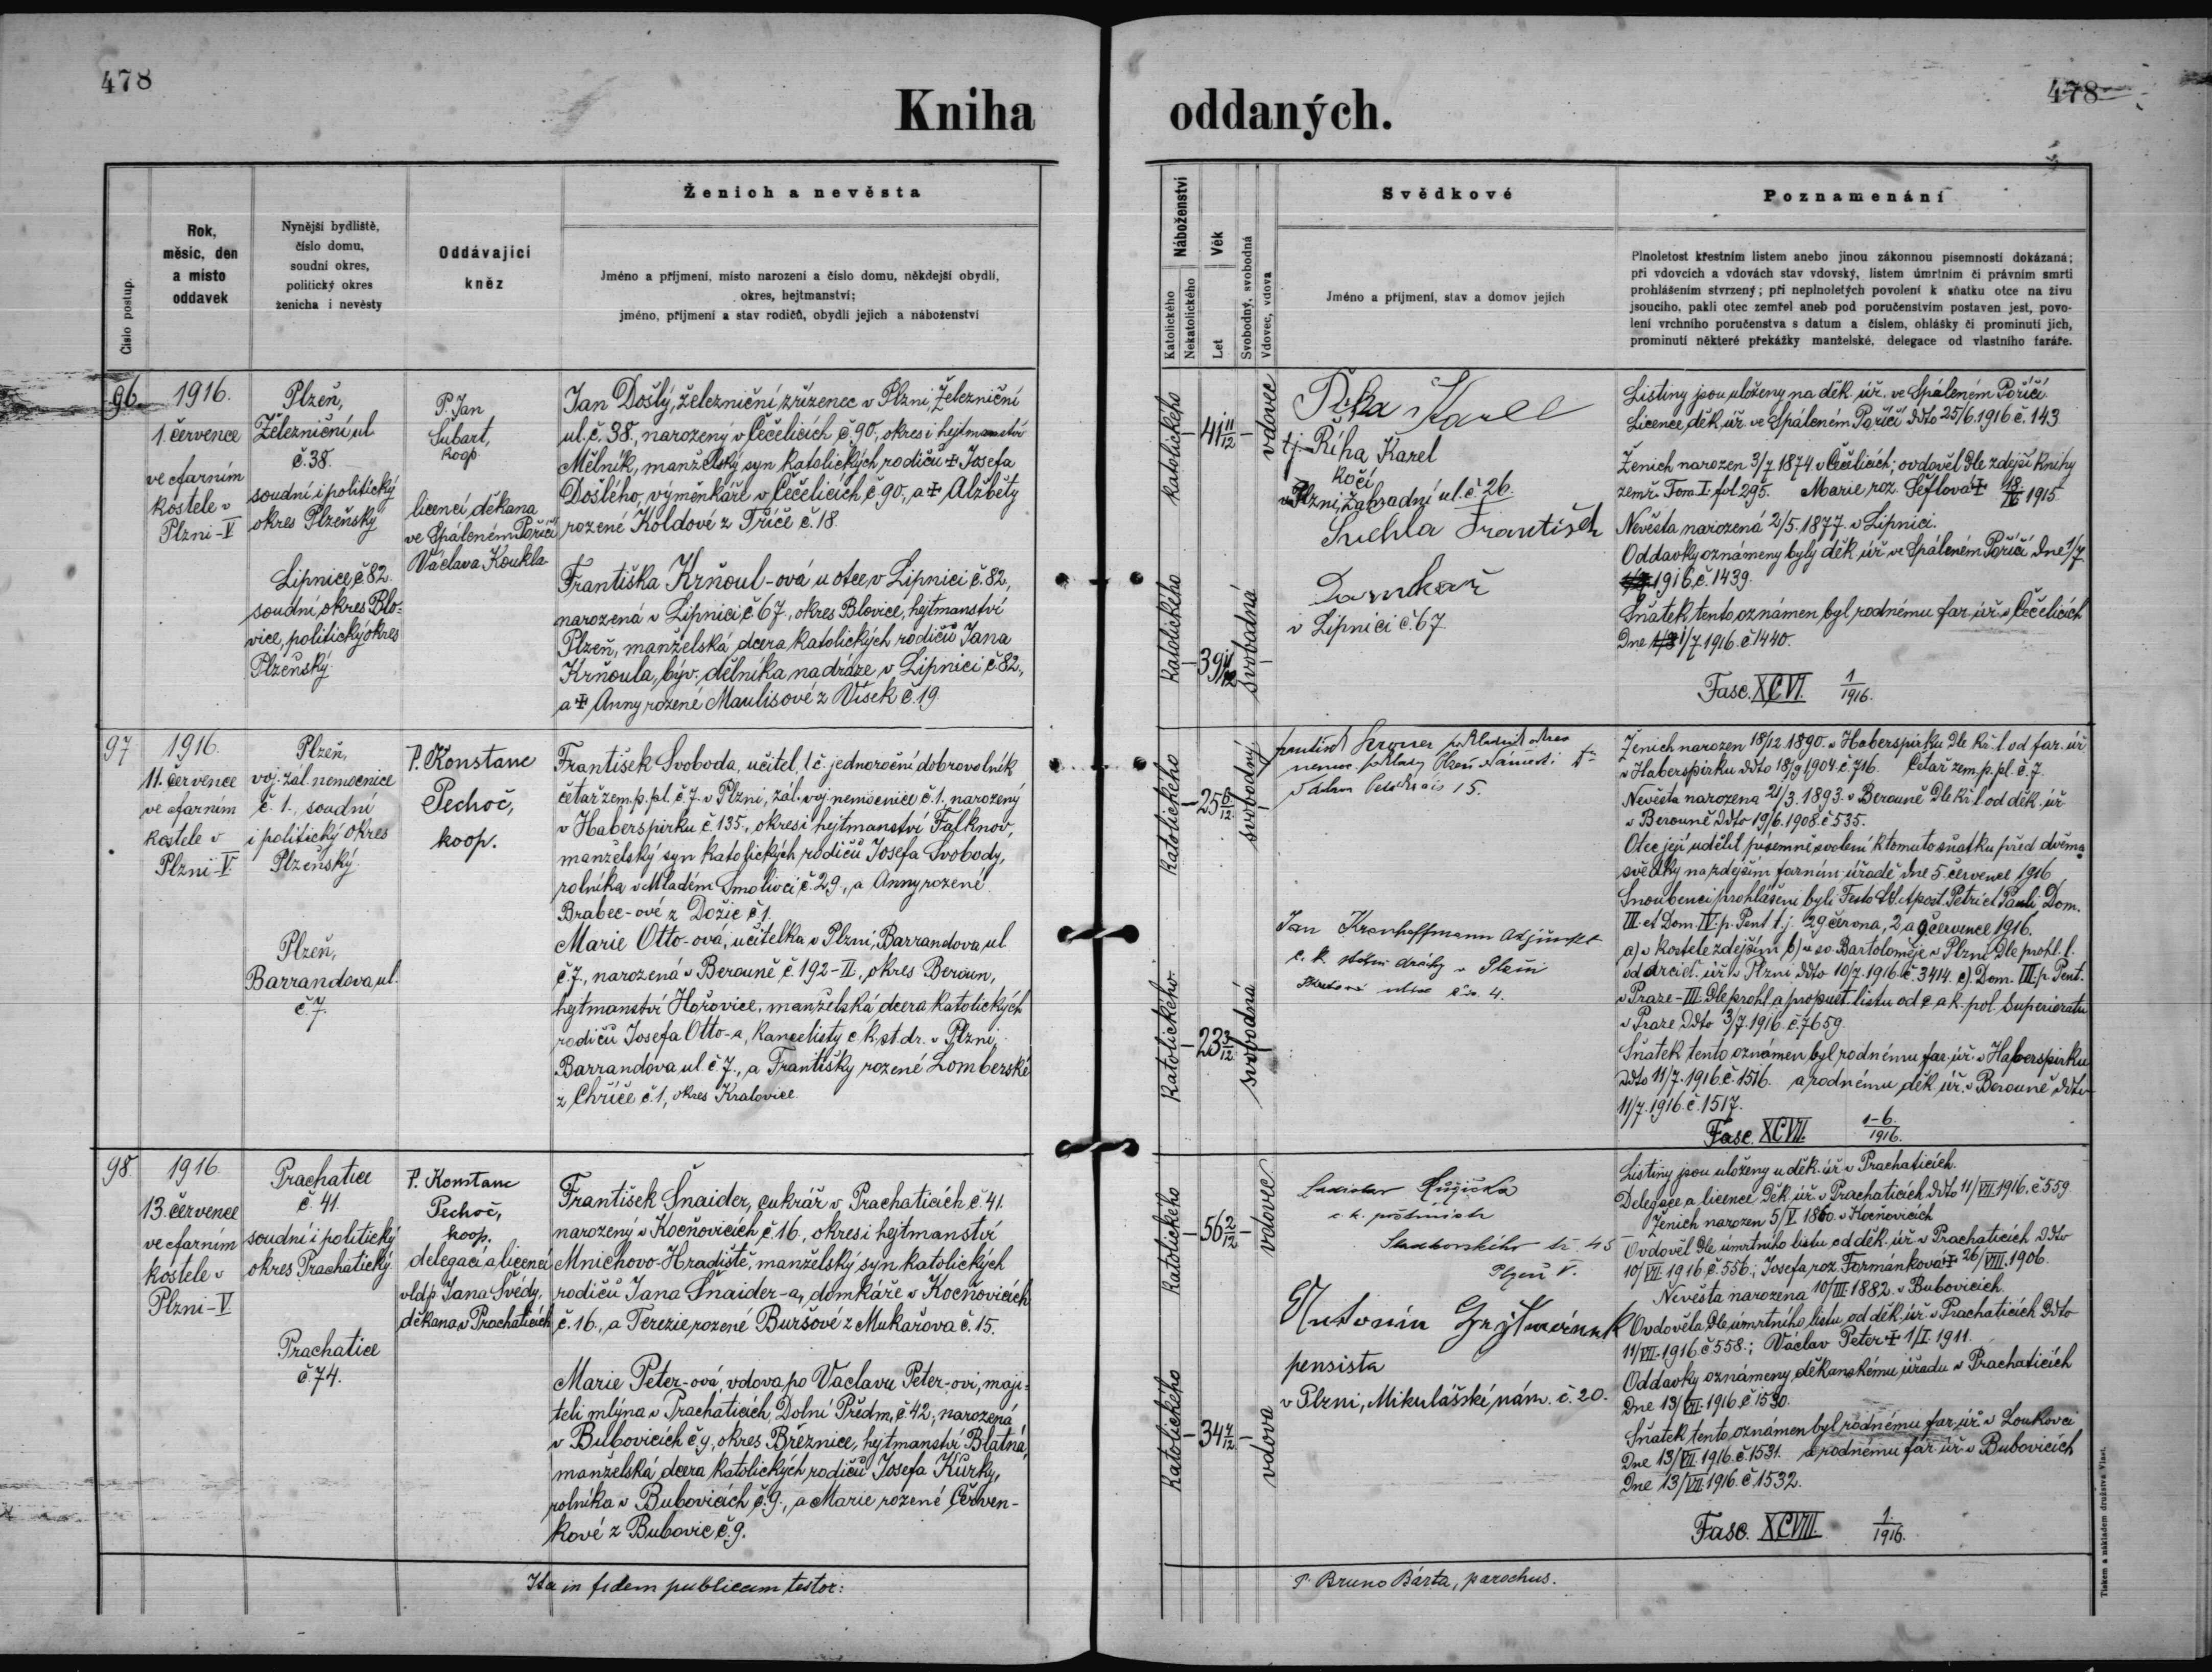 478
478
Kniha oddaných.
Číslo postup.
Rok,
měsíc, den
a místo
oddavek
Nynější bydliště,
číslo domu,
soudní okres,
politický okres
ženicha i nevěsty
Oddávající
kněz
Ženich a nevěsta
Jméno a příjmení, místo narození a číslo domu, někdejší obydlí,
okres, hejtmanství;
jméno, příjmení a stav rodičů, obydlí jejich a náboženství
Náboženství
Katolického
Nekatolického
Věk
Let
Svobodný, svobodná
Vdovec, vdova
Svědkové
Jméno a příjmení, stav a domov jejich
Poznamenání
Plnoletost křestním listem anebo jinou zákonnou písemností dokázaná;
při vdovcích a vdovách stav vdovský, listem úmrtním či právním smrti
prohlášením stvrzený; při neplnoletých povolení k sňatku otce na živu
jsoucího, pakli otec zemřel aneb pod poručenstvím postaven jest, povo-
lení vrchního poručenstva s datum a číslem, ohlášky či prominutí jich,
prominutí některé překážky manželské, delegace od vlastního faráře.
96.
1916.
1. července
ve farním
kostele v
Plzni-V
Plzeň,
Železniční ul.
č. 38.
soudní i politický
okres Plzeňský
Lipnice č 82.
soudní okres Blo-
vice, politický okres
Plzeňský.
P. Jan
Šubart,
koop.
licencí děkana
ve Spáleném Poříčí
Václava Koukla
Jan Došlý, železniční zřízenec v Plzni, Železniční
ul. č. 38., narozený v Čečelicích č. 90., okres i hejtmanství
Mělník, manželský syn katolických rodičů ✝ Josefa
Došlého, výměnkáře v Čečelicích č. 90., a ✝ Alžběty
rozené Koldové z Tříče č. 18.
Františka Krňoul-ová u otce v Lipnici č. 82.,
narozená v Lipnici č 67., okres Blovice, hejtmanství
Plzeň, manželská dcera katolických rodičů Jana
Krňoula, býv. dělníka na dráze v Lipnici č 82.,
a ✝ Anny rozené Maulisové z Vísek č. 19.
katolického
41 11/12
vdovec
katolického
39 1/12
svobodná
Říha Karel
tj. Říha Karel
kočí
v Plzni, Zahradní ul. č. 26.
Suchla František
Domkař
v Lipnici č. 67
Listiny jsou uloženy na děk. úř. ve Spáleném Poříčí
Licence děk. úř. ve Spáleném Poříčí ddto 25/6. 1916 č. 143
Ženich narozen 3/7 1874 v Čečelicích; ovdověl dle zdejší knihy
zemř. Tom I. fol 295. Marie roz. Šeflova ✝ 18./IV 1915.
Nevěsta narozená 2/5. 1877. v Lipnici.
Oddavky oznámeny byly děk. úř. ve Spáleném Poříčí dne 1/7.
1916. č. 1439.
Sňatek tento oznámen byl rodnému far. úř. v Čečelicích
Dne 1/7 1916. č. 1440.
Fasc. XCVI. 1/1916.
97
1916.
11. července
ve farním
kostele v
Plzni-V.
Plzeň,
voj. zál. nemocnice
č. 1., soudní
i politický okres
Plzeňský.
Plzeň,
Barrandova ul.
č. 7.
P. Konstanc
Pechoč,
koop.
František Svoboda, učitel, t. č. jednoroční dobrovolník
četař zem. p. pl. č. 7. v Plzni, zál. voj. nemocnice č. 1., narozený
v Haberspirku č. 135., okres i hejtmanství Falknov,
manželský syn katolických rodičů Josefa Svobody,
rolníka v Mladém Smolivci č. 29., a Anny rozené
Brabec-ové z Dožic č. 1.
Marie Otto-ová, učitelka v Plzni, Barrandova ul.
č. 7., narozená v Berouně č. 192-II., okres Beroun,
hejtmanství Hořovice, manželská dcera katolických
rodičů Josefa Otto-a, kancelisty c. k. st. dr. v Plzni,
Barrandova ul. č. 7., a Františky rozené Lomberské
z Chříče č. 1, okres Kralovice.
katolického
25 6/12
svobodný
katolického
23 3/12
svobodná
15.
Jan Kronhoffmann adjunkt
c. k. státní dráhy v Plzni
ulice čís. 4.
Ženich narozen 18/12. 1890. v Haberspirku dle kř. l. od far. úř.
v Haberspirku ddto 18/9 1904. č. 716. Četař zem. p. pl. č. 7.
Nevěsta narozena 21/3. 1893. v Berouně dle kř. l. od děk. úř.
v Berouně ddto 19/6. 1908. č 535.
Otec její udělil písemné svolení k tomuto sňatku před dvěma
svědky na zdejším farním úřadě dne 5. července 1916
Snoubenci prohlášeni byli Festo SS. Apost. Petri et Pauli Dom.
III. et Dom. IV. p. Pent. t. j. 29 června, 2 a 9 července 1916.
a) v kostele zdejším b) u sv. Bartoloměje v Plzni dle prohl. l.
od arcid. úř. v Plzni ddto 10/7. 1916. č. 3414. c). Dom. III. p. Pent.
v Praze-III. dle prohl. a propust. listu od c. a k. pol. Superioratu
v Praze ddto 3/7. 1916. č. 7659.
Sňatek tento oznámen byl rodnému far. úř. v Haberspirku
ddto 11/7. 1916. č. 1516. a rodnému děk. úř. v Berouně ddto
11/7. 1916. č. 1517.
Fasc. XCVII. 1-6/1916.
98
1916.
13. července
ve farním
kostele v
Plzni-V
Prachatice
č. 41.
soudní i politický
okres Prachatický.
Prachatice
č. 74.
P. Konstanc
Pechoč,
koop.
delegací a licencí
vldp. Jana Švédy,
děkana v Prachaticích
František Šnaider, cukrář v Prachaticích č. 41.
narozený v Kocňovicích č. 16., okres i hejtmanství
Mnichovo-Hradiště, manželský syn katolických
rodičů Jana Šnaider-a, domkáře v Kocňovicích
č. 16., a Terezie rozené Buršové z Mukařova č. 15.
Marie Peter-ová, vdova po Václavu Peter-ovi, maji-
teli mlýna v Prachaticích, Dolní Předm. č. 42., narozená
v Bubovicích č. 9., okres Březnice, hejtmanství Blatná,
manželská dcera katolických rodičů Josefa Kůrky,
rolníka v Bubovicích č. 9., a Marie rozené Červen-
kové z Bubovic č. 9.
katolického
56 2/12
vdovec
katolického
34 4/12
vdova
Ladislav Růžička
c. k. poštmistr
Sladkovského tř. 45
Plzeň V.
Antonín
pensista
v Plzni, Mikulášské nám. č. 20.
Listiny jsou uloženy u děk. úř. v Prachaticích.
Delegace a licence děk. úř. v Prachaticích ddto 11/VII 1916. č 559
Ženich narozen 5/V. 1860. v Kocňovicích
Ovdověl dle úmrtního listu od děk. úř. v Prachaticích ddto
10/VII. 1916 č. 556.; Josefa roz. Formánková ✝ 26/VIII. 1906.
Nevěsta narozena 10/III. 1882. v Bubovicích.
Ovdověla dle úmrtního listu od děk. úř. v Prachaticích ddto
11/VII. 1916 č 558.; Václav Peter ✝ 1/I. 1911.
Oddavky oznámeny děkanskému úřadu v Prachaticích
Dne 13/VII. 1916. č. 1530.
Sňatek tento oznámen byl rodnému far. úř. v Loukovci
Dne 13/VII. 1916. č. 1531. a rodnému far. úř. v Bubovicích
Dne 13/VII 1916. č. 1532.
Fasc. XCVIII. 1./1916.
Ita in fidem publicam testor:
P. Bruno Bárta, parochus.
Tiskem a nákladem družstva Vlast.